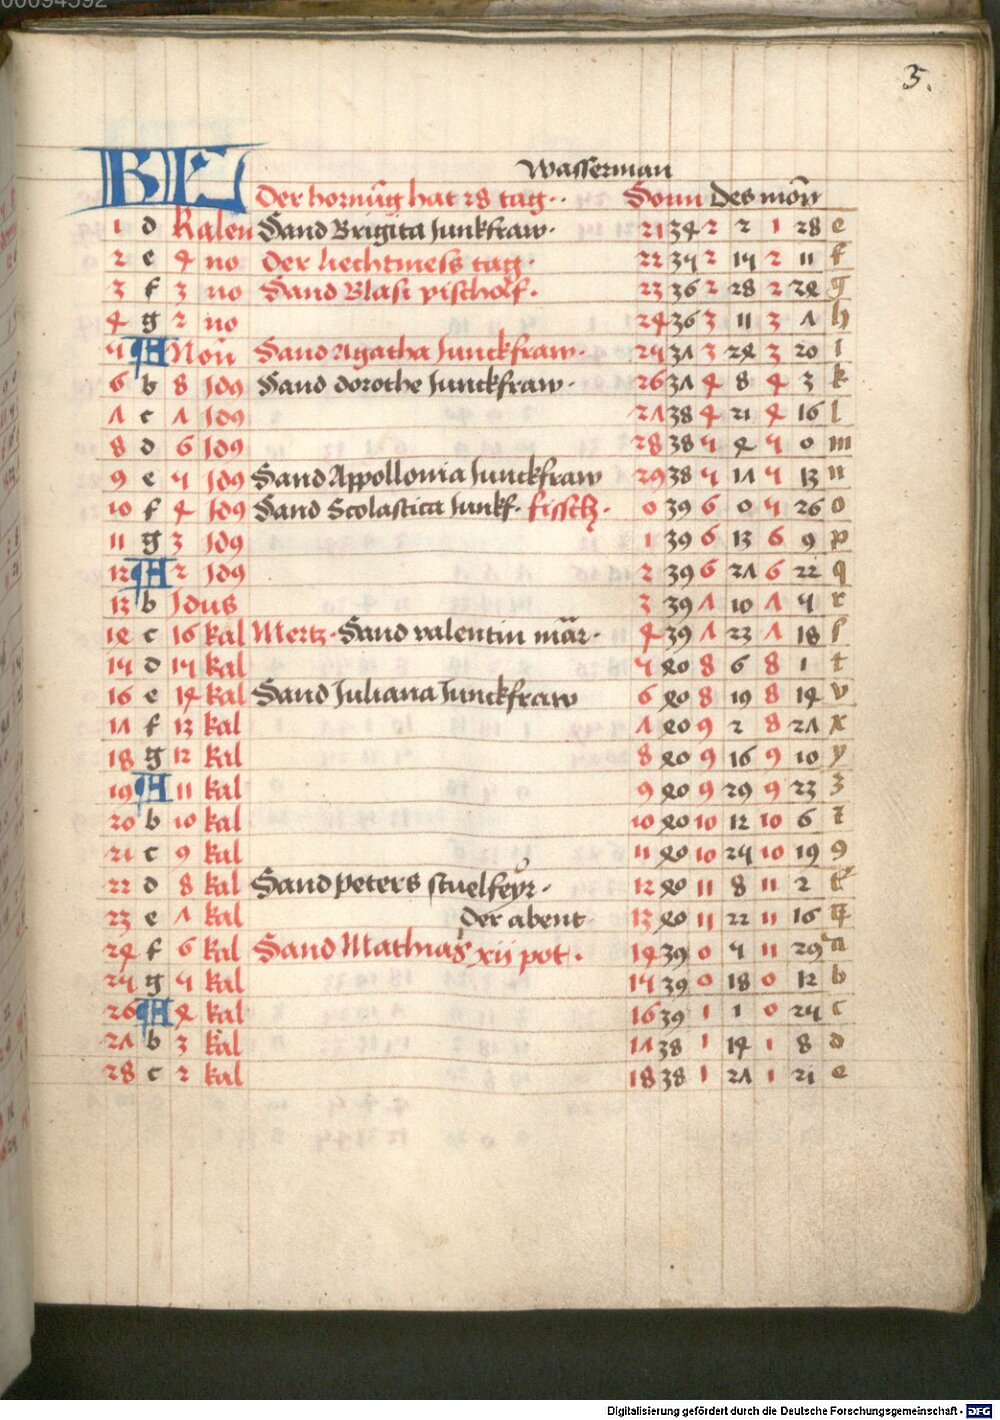 00094592
5.
Wasserman
KE Der hornūg hat 28 tag. Sonn Des mōn
1 d Kalen Sand Brigita Junkfraw. 21 34 2 2 1 28 e
2 e 4 no Der liechtmess tag. 22 35 2 15 2 11 f
3 f 3 no Sand Blasi pischolf. 23 36 2 28 2 24 g
4 g 2 no 24 36 3 11 3 7 h
5 A Non Sand Agatha Junckfraw. 25 37 3 24 3 20 i
6 b 8 Idꝰ Sand dorothe Junckfraw. 26 37 4 8 4 3 k
7 c 7 Idꝰ 27 38 4 21 4 16 l
8 d 6 Idꝰ 28 38 5 4 5 0 m
9 e 5 Idꝰ Sand Appollonia Junckfraw 29 38 5 17 5 13 n
10 f 4 Idꝰ Sand Scolastica Junkf. fissch. 0 39 6 0 5 26 o
11 g 3 Idꝰ 1 39 6 13 6 9 p
12 A 2 Idꝰ 2 39 6 27 6 22 q
13 b Idus 3 39 7 10 7 5 r
14 c 16 kal Mertz. Sand valentin mār. 4 39 7 23 7 18 ſ
15 d 15 kal 5 40 8 6 8 1 t
16 e 14 kal Sand Juliana Junckfraw 6 40 8 19 8 14 v
17 f 13 kal 7 40 9 2 8 27 x
18 g 12 kal 8 40 9 16 9 10 y
19 A 11 kal 9 40 9 29 9 23 z
20 b 10 kal 10 40 10 12 10 6
21 c 9 kal 11 40 10 25 10 19 9
22 d 8 kal Sand peters stuelfeyr. 12 40 11 8 11 2
23 e 7 kal Der abent 13 40 11 22 11 16
24 f 6 kal Sand Mathias xii pot. 14 39 0 5 11 29 a
25 g 5 kal 15 39 0 18 0 12 b
26 A 4 kal 16 39 1 1 0 25 c
27 b 3 kal 17 38 1 14 1 8 d
28 c 2 kal 18 38 1 27 1 21 e
Digitalisierung gefördert durch die Deutsche Forschungsgemeinschaft - DFG